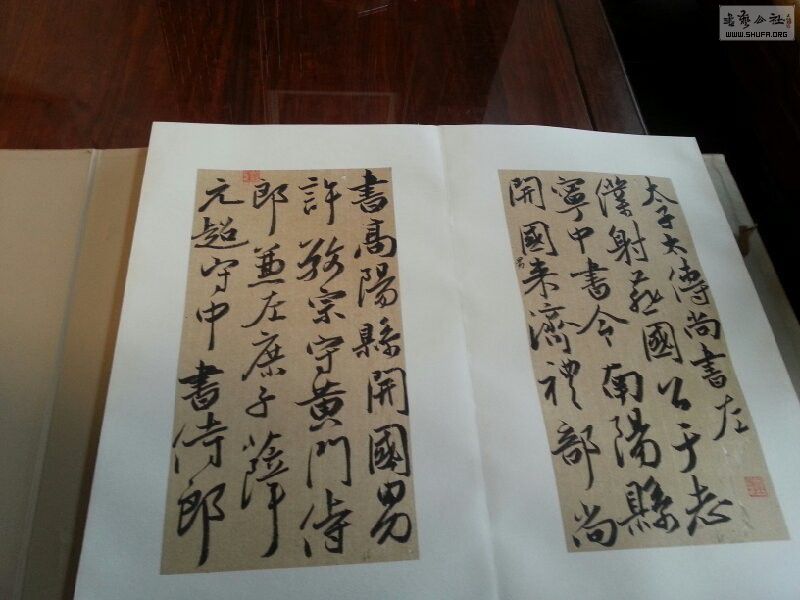 太子太傅尚書左
僕射燕國公于志
寧中書令南陽縣
開國男来濟禮部尚
書高陽縣開國男
許敬宗守黃門侍
郎兼左庶子薛
元超守中書侍郎
书艺公社
WWW.SHUFA.ORG